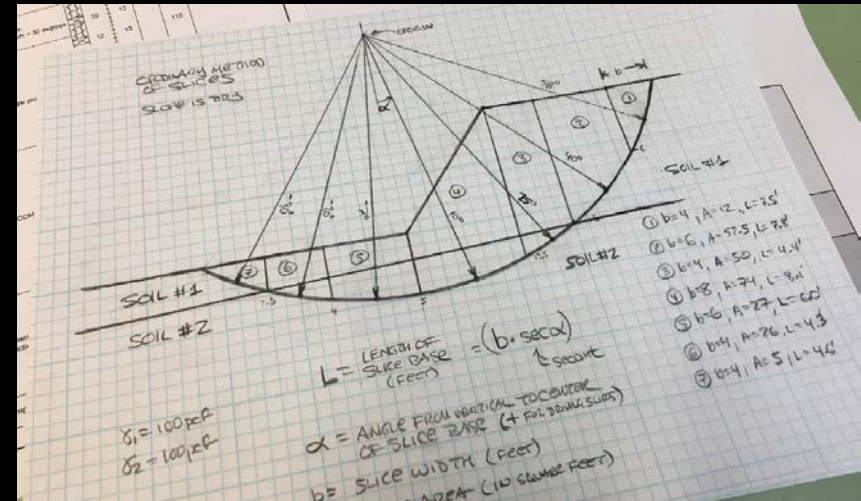 ORDINARY METHOD
OF SLICES
SLOPE IS DRY
ORIGIN
α
b
①
②
③
④
⑤
⑥
⑦
SOIL #1
SOIL #2
SOIL #1
SOIL #2
7.5
4
5
① b=4, A=12, L=7.5'
② b=6, A=57.5, L=7.8'
③ b=4, A=50, L=4.4'
④ b=8, A=74, L=8.1'
⑤ b=6, A=27, L=6.0'
⑥ b=4, A=26, L=4.3'
⑦ b=4, A=5, L=4.6'
L = LENGTH OF SLICE BASE (FEET) = (b·secα)
secant
γ1 = 100pcf
γ2 = 100pcf
α = ANGLE FROM VERTICAL TO CENTER
OF SLICE BASE (+ FOR DRIVING SLICES)
b= SLICE WIDTH (FEET)
AREA (IN SQUARE FEET)